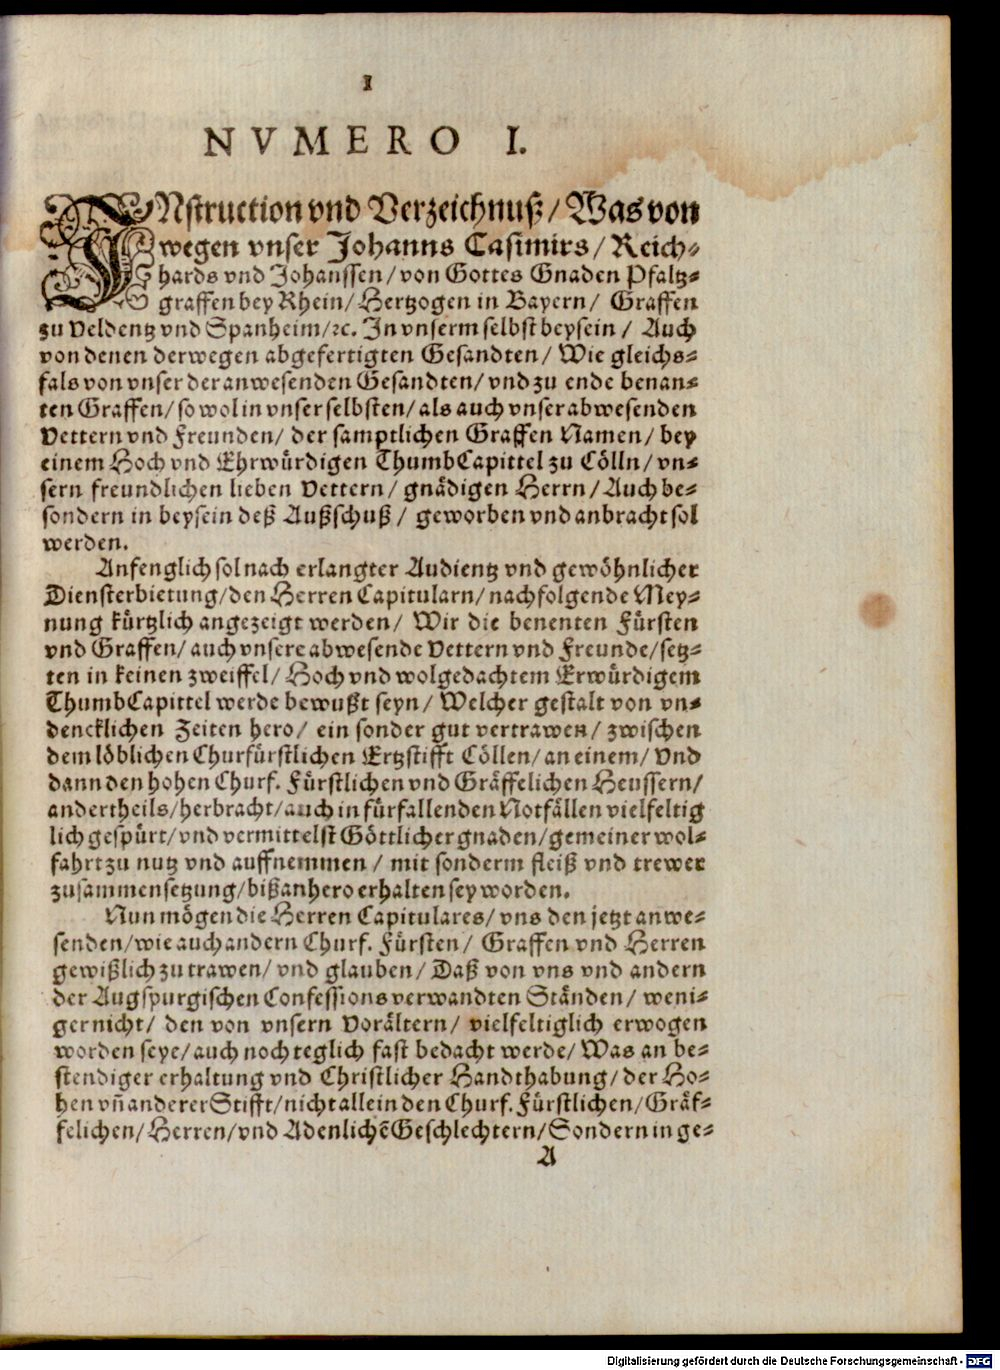 1
NVMERO I.
INstruction vnd Verzeichnuß/ Was von
wegen vnser Johanns Casimirs/ Reich⸗
hards vnd Johanssen/ von Gottes Gnaden Pfaltz⸗
graffen bey Rhein/ Hertzogen in Bayern/ Graffen
zu Veldentz vnd Spanheim/ꝛc. In vnserm selbst beysein/ Auch
von denen derwegen abgefertigten Gesandten/ Wie gleichs⸗
fals von vnser der anwesenden Gesandten/ vnd zu ende benan⸗
ten Graffen/ so wol in vnser selbsten/ als auch vnser abwesenden
Vettern vnd Freunden/ der samptlichen Graffen Namen/ bey
einem Hoch vnd Ehrwürdigen ThumbCapittel zu Cölln/ vn⸗
sern freundlichen lieben Vettern/ gnädigen Herrn/ Auch be⸗
sondern in beysein deß Außschuß/ geworben vnd anbracht sol
werden.
Anfenglich sol nach erlangter Audientz vnd gewöhnlicher
Diensterbietung/ den Herren Capitularn/ nachfolgende Mey⸗
nung kürtzlich angezeigt werden/ Wir die benenten Fürsten
vnd Graffen/ auch vnsere abwesende Vettern vnd Freunde/ setz⸗
ten in keinen zweiffel/ Hoch vnd wolgedachtem Erwürdigem
ThumbCapittel werde bewußt seyn/ Welcher gestalt von vn⸗
dencklichen Zeiten hero/ ein sonder gut vertrawen/ zwischen
dem löblichen Churfürstlichen Ertzstifft Cöllen/ an einem/ Vnd
dann den hohen Churf. Fürstlichen vnd Gräffelichen Heussern/
andertheils/ herbracht/ auch in fürfallenden Notfällen vielfeltig
lich gespürt/ vnd vermittelst Göttlicher gnaden/ gemeiner wol⸗
fahrt zu nutz vnd auffnemmen/ mit sonderm fleiß vnd trewer
zusammensetzung/ bißanhero erhalten sey worden.
Nun mögen die Herren Capitulares/ vns den jetzt anwe⸗
senden/ wie auch andern Churf. Fürsten/ Graffen vnd Herren
gewißlich zu trawen/ vnd glauben/ Daß von vns vnd andern
der Augspurgischen Confessions verwandten Ständen/ weni⸗
ger nicht/ den von vnsern Vorältern/ vielfeltiglich erwogen
worden seye/ auch noch teglich fast bedacht werde/ Was an be⸗
stendiger erhaltung vnd Christlicher Handthabung/ der Ho⸗
hen vñ anderer Stifft/ nicht allein den Churf. Fürstlichen/ Gräf⸗
felichen/ Herren/ vnd Adenlichẽ Geschlechtern/ Sondern in ge⸗
A
Digitalisierung gefördert durch die Deutsche Forschungsgemeinschaft - DFG